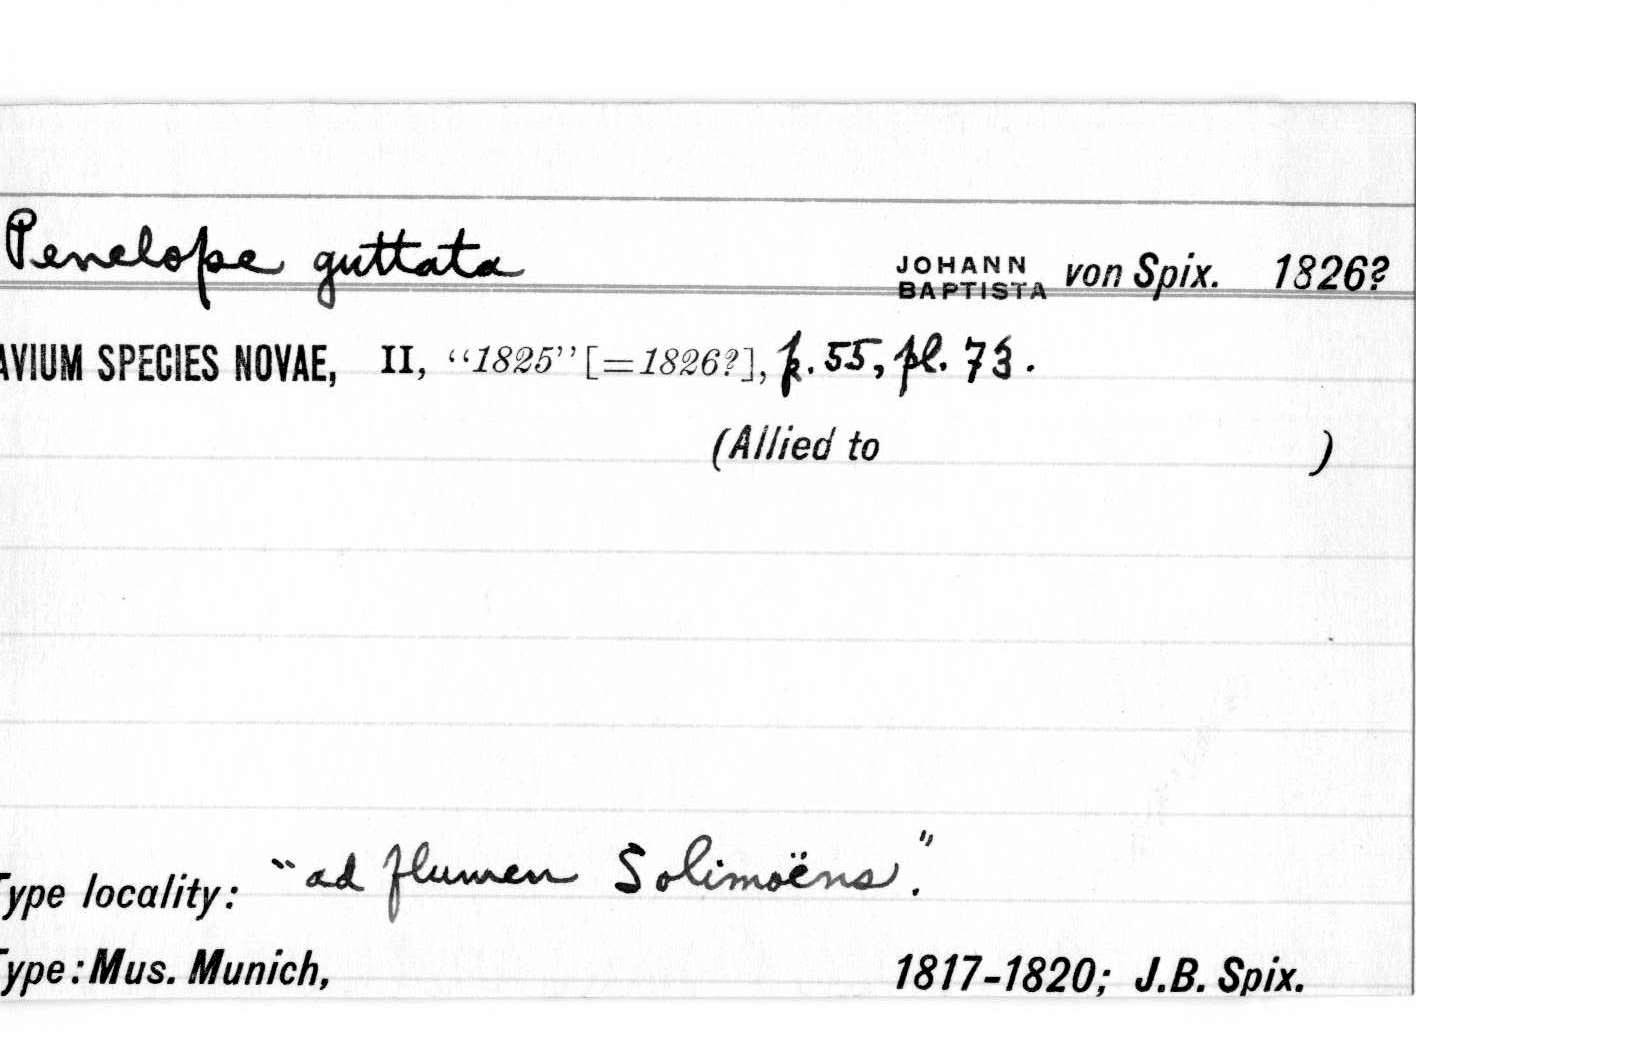 Penelope guttata JOHANN BAPTISTA von Spix. 1826?
AVIUM SPECIES NOVAE, II, “1825” [=1826?], p. 55, pl. 73.
(Allied to )
Type locality: "ad flumen Solimoëns".
Type: Mus. Munich, 1817-1820; J.B. Spix.